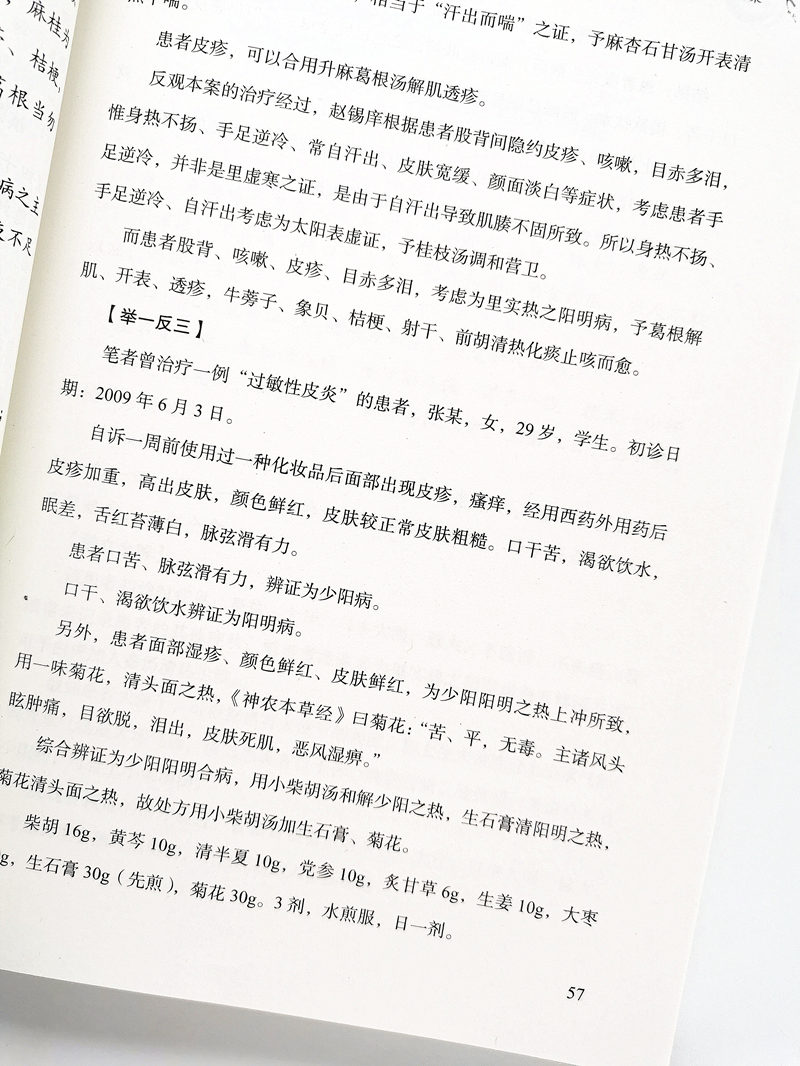 麻桂为
、桔梗，
葛根当勿
病之主
相当于“汗出而喘”之证，予麻杏石甘汤开表清
患者皮疹，可以合用升麻葛根汤解肌透疹。
反观本案的治疗经过，赵锡庠根据患者股背间隐约皮疹、咳嗽，目赤多泪，
惟身热不扬、手足逆冷、常自汗出、皮肤宽缓、颜面淡白等症状，考虑患者手
足逆冷，并非是里虚寒之证，是由于自汗出导致肌腠不固所致。所以身热不扬、
手足逆冷、自汗出考虑为太阳表虚证，予桂枝汤调和营卫。
而患者股背、咳嗽、皮疹、目赤多泪，考虑为里实热之阳明病，予葛根解
肌、开表、透疹，牛蒡子、象贝、桔梗、射干、前胡清热化痰止咳而愈。
【举一反三】
笔者曾治疗一例“过敏性皮炎”的患者，张某，女，29岁，学生。初诊日
期：2009年6月3日。
自诉一周前使用过一种化妆品后面部出现皮疹，瘙痒，经用西药外用药后
皮疹加重，高出皮肤，颜色鲜红，皮肤较正常皮肤粗糙。口干苦，渴欲饮水，
眠差，舌红苔薄白，脉弦滑有力。
患者口苦、脉弦滑有力，辨证为少阳病。
口干、渴欲饮水辨证为阳明病。
另外，患者面部湿疹、颜色鲜红、皮肤鲜红，为少阳阳明之热上冲所致，
用一味菊花，清头面之热，《神农本草经》曰菊花：“苦、平，无毒。主诸风头
眩肿痛，目欲脱，泪出，皮肤死肌，恶风湿痹。”
综合辨证为少阳阳明合病，用小柴胡汤和解少阳之热，生石膏清阳明之热，
菊花清头面之热，故处方用小柴胡汤加生石膏、菊花。
柴胡16g，黄芩10g，清半夏10g，党参10g，炙甘草6g，生姜10g，大枣
g，生石膏30g（先煎），菊花30g。3剂，水煎服，日一剂。
57